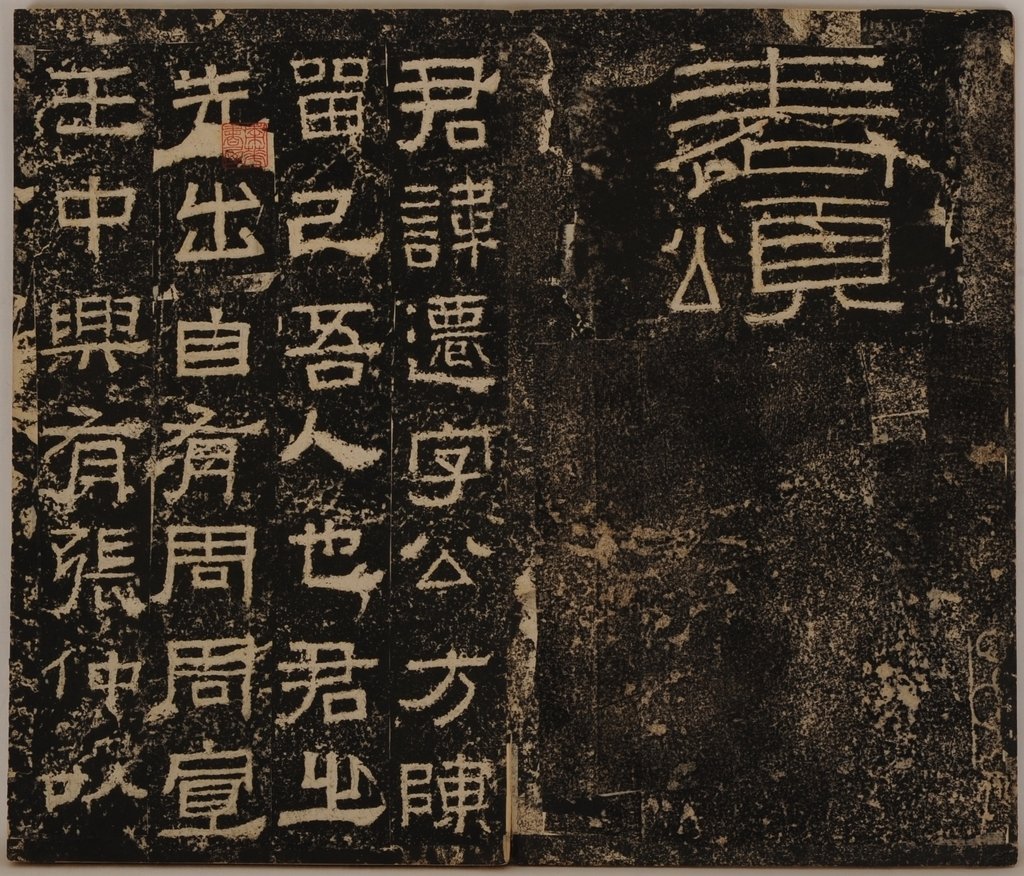 表頌
君諱遷字公方陳
留己吾人也君之
先出自有周周宣
王中興有張仲以